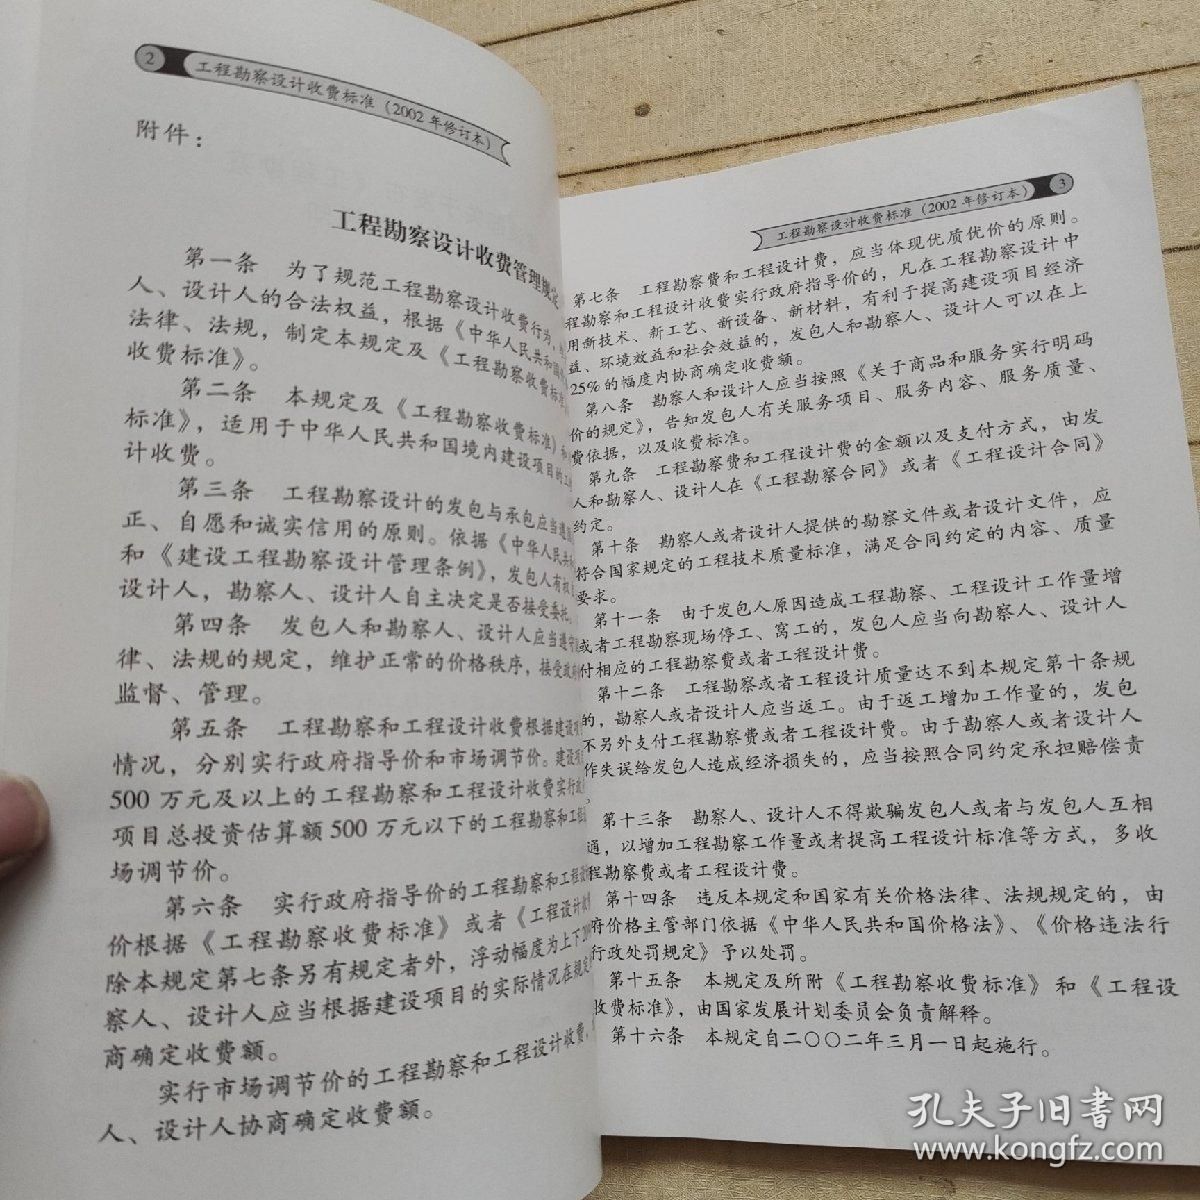 2
工程勘察设计收费标准（2002 年修订本）
附件：
工程勘察设计收费管理规定
第一条 为了规范工程勘察设计收费行为，
人、设计人的合法权益，根据《中华人民共和国
法律、法规，制定本规定及《工程勘察收费标准
收费标准》。
第二条 本规定及《工程勘察收费标准》和
标准》，适用于中华人民共和国境内建设项目的工
计收费。
第三条 工程勘察设计的发包与承包应当遵
正、自愿和诚实信用的原则。依据《中华人民共
和《建设工程勘察设计管理条例》，发包人有权
设计人，勘察人、设计人自主决定是否接受委托。
第四条 发包人和勘察人、设计人应当遵守
律、法规的规定，维护正常的价格秩序，接受政
监督、管理。
第五条 工程勘察和工程设计收费根据建设
情况，分别实行政府指导价和市场调节价。建设
500 万元及以上的工程勘察和工程设计收费实行政
项目总投资估算额 500 万元以下的工程勘察和工程
场调节价。
第六条 实行政府指导价的工程勘察和工程设
价根据《工程勘察收费标准》或者《工程设计收
除本规定第七条另有规定者外，浮动幅度为上下20
察人、设计人应当根据建设项目的实际情况在规定
商确定收费额。
实行市场调节价的工程勘察和工程设计收费，
人、设计人协商确定收费额。
工程勘察设计收费标准（2002 年修订本）
3
第七条 工程勘察费和工程设计费，应当体现优质优价的原则。
程勘察和工程设计收费实行政府指导价的，凡在工程勘察设计中
用新技术、新工艺、新设备、新材料，有利于提高建设项目经济
益、环境效益和社会效益的，发包人和勘察人、设计人可以在上
25%的幅度内协商确定收费额。
第八条 勘察人和设计人应当按照《关于商品和服务实行明码
价的规定》，告知发包人有关服务项目、服务内容、服务质量、
费依据，以及收费标准。
第九条 工程勘察费和工程设计费的金额以及支付方式，由发
人和勘察人、设计人在《工程勘察合同》或者《工程设计合同》
约定。
第十条 勘察人或者设计人提供的勘察文件或者设计文件，应
符合国家规定的工程技术质量标准，满足合同约定的内容、质量
要求。
第十一条 由于发包人原因造成工程勘察、工程设计工作量增
或者工程勘察现场停工、窝工的，发包人应当向勘察人、设计人
付相应的工程勘察费或者工程设计费。
第十二条 工程勘察或者工程设计质量达不到本规定第十条规
的，勘察人或者设计人应当返工。由于返工增加工作量的，发包
不另外支付工程勘察费或者工程设计费。由于勘察人或者设计人
作失误给发包人造成经济损失的，应当按照合同约定承担赔偿责
第十三条 勘察人、设计人不得欺骗发包人或者与发包人互相
通，以增加工程勘察工作量或者提高工程设计标准等方式，多收
程勘察费或者工程设计费。
第十四条 违反本规定和国家有关价格法律、法规规定的，由
府价格主管部门依据《中华人民共和国价格法》、《价格违法行
行政处罚规定》予以处罚。
第十五条 本规定及所附《工程勘察收费标准》和《工程设
收费标准》，由国家发展计划委员会负责解释。
第十六条 本规定自二〇〇二年三月一日起施行。
孔夫子旧书网
www.kongfz.com